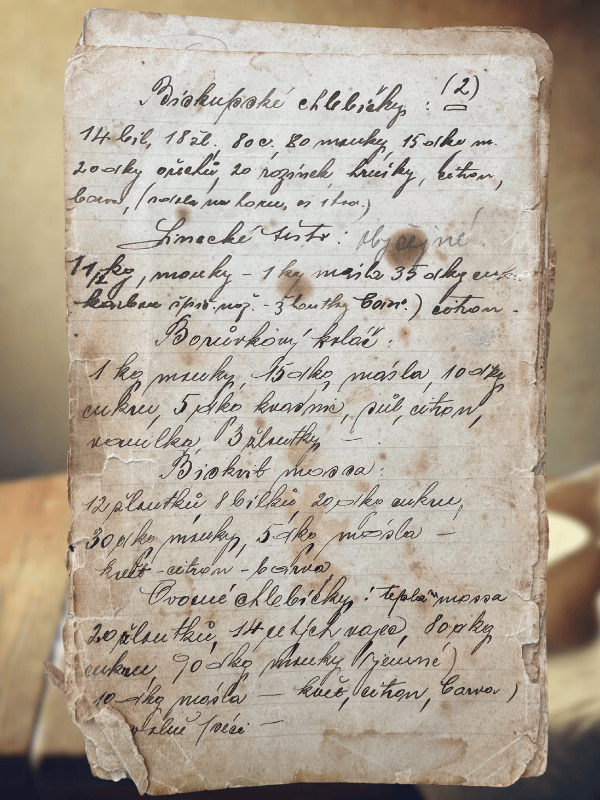 Biskupské chlebíčky : (2)
14 bíl, 18 žl. 80 c. 80 mouky, 15 dko m.
20 dkg ořechů, 20 rozinek hrušky, citron,
barva,
Linecké těsto : obyčejné
kg, mouky - 1 kg másla 35 dkg
citron.
Borůvkový koláč :
1 kg mouky, 15 dkg másla, 10 dkg
cukru, 5 dko kvasnic, půl, citron,
vanilka, 3 žloutky -
Biskvit massa :
12 žloutků 8 bílků, 20 dko cukru,
30 dko mouky, 5 dko másla -
květ - citron - barva
Ovocné chlebíčky : teplá massa
20 žloutků, 14 vajec, 80 dkg
cukru, 90 dkg mouky (jemné)
10 dkg másla - květ, citron, barva)